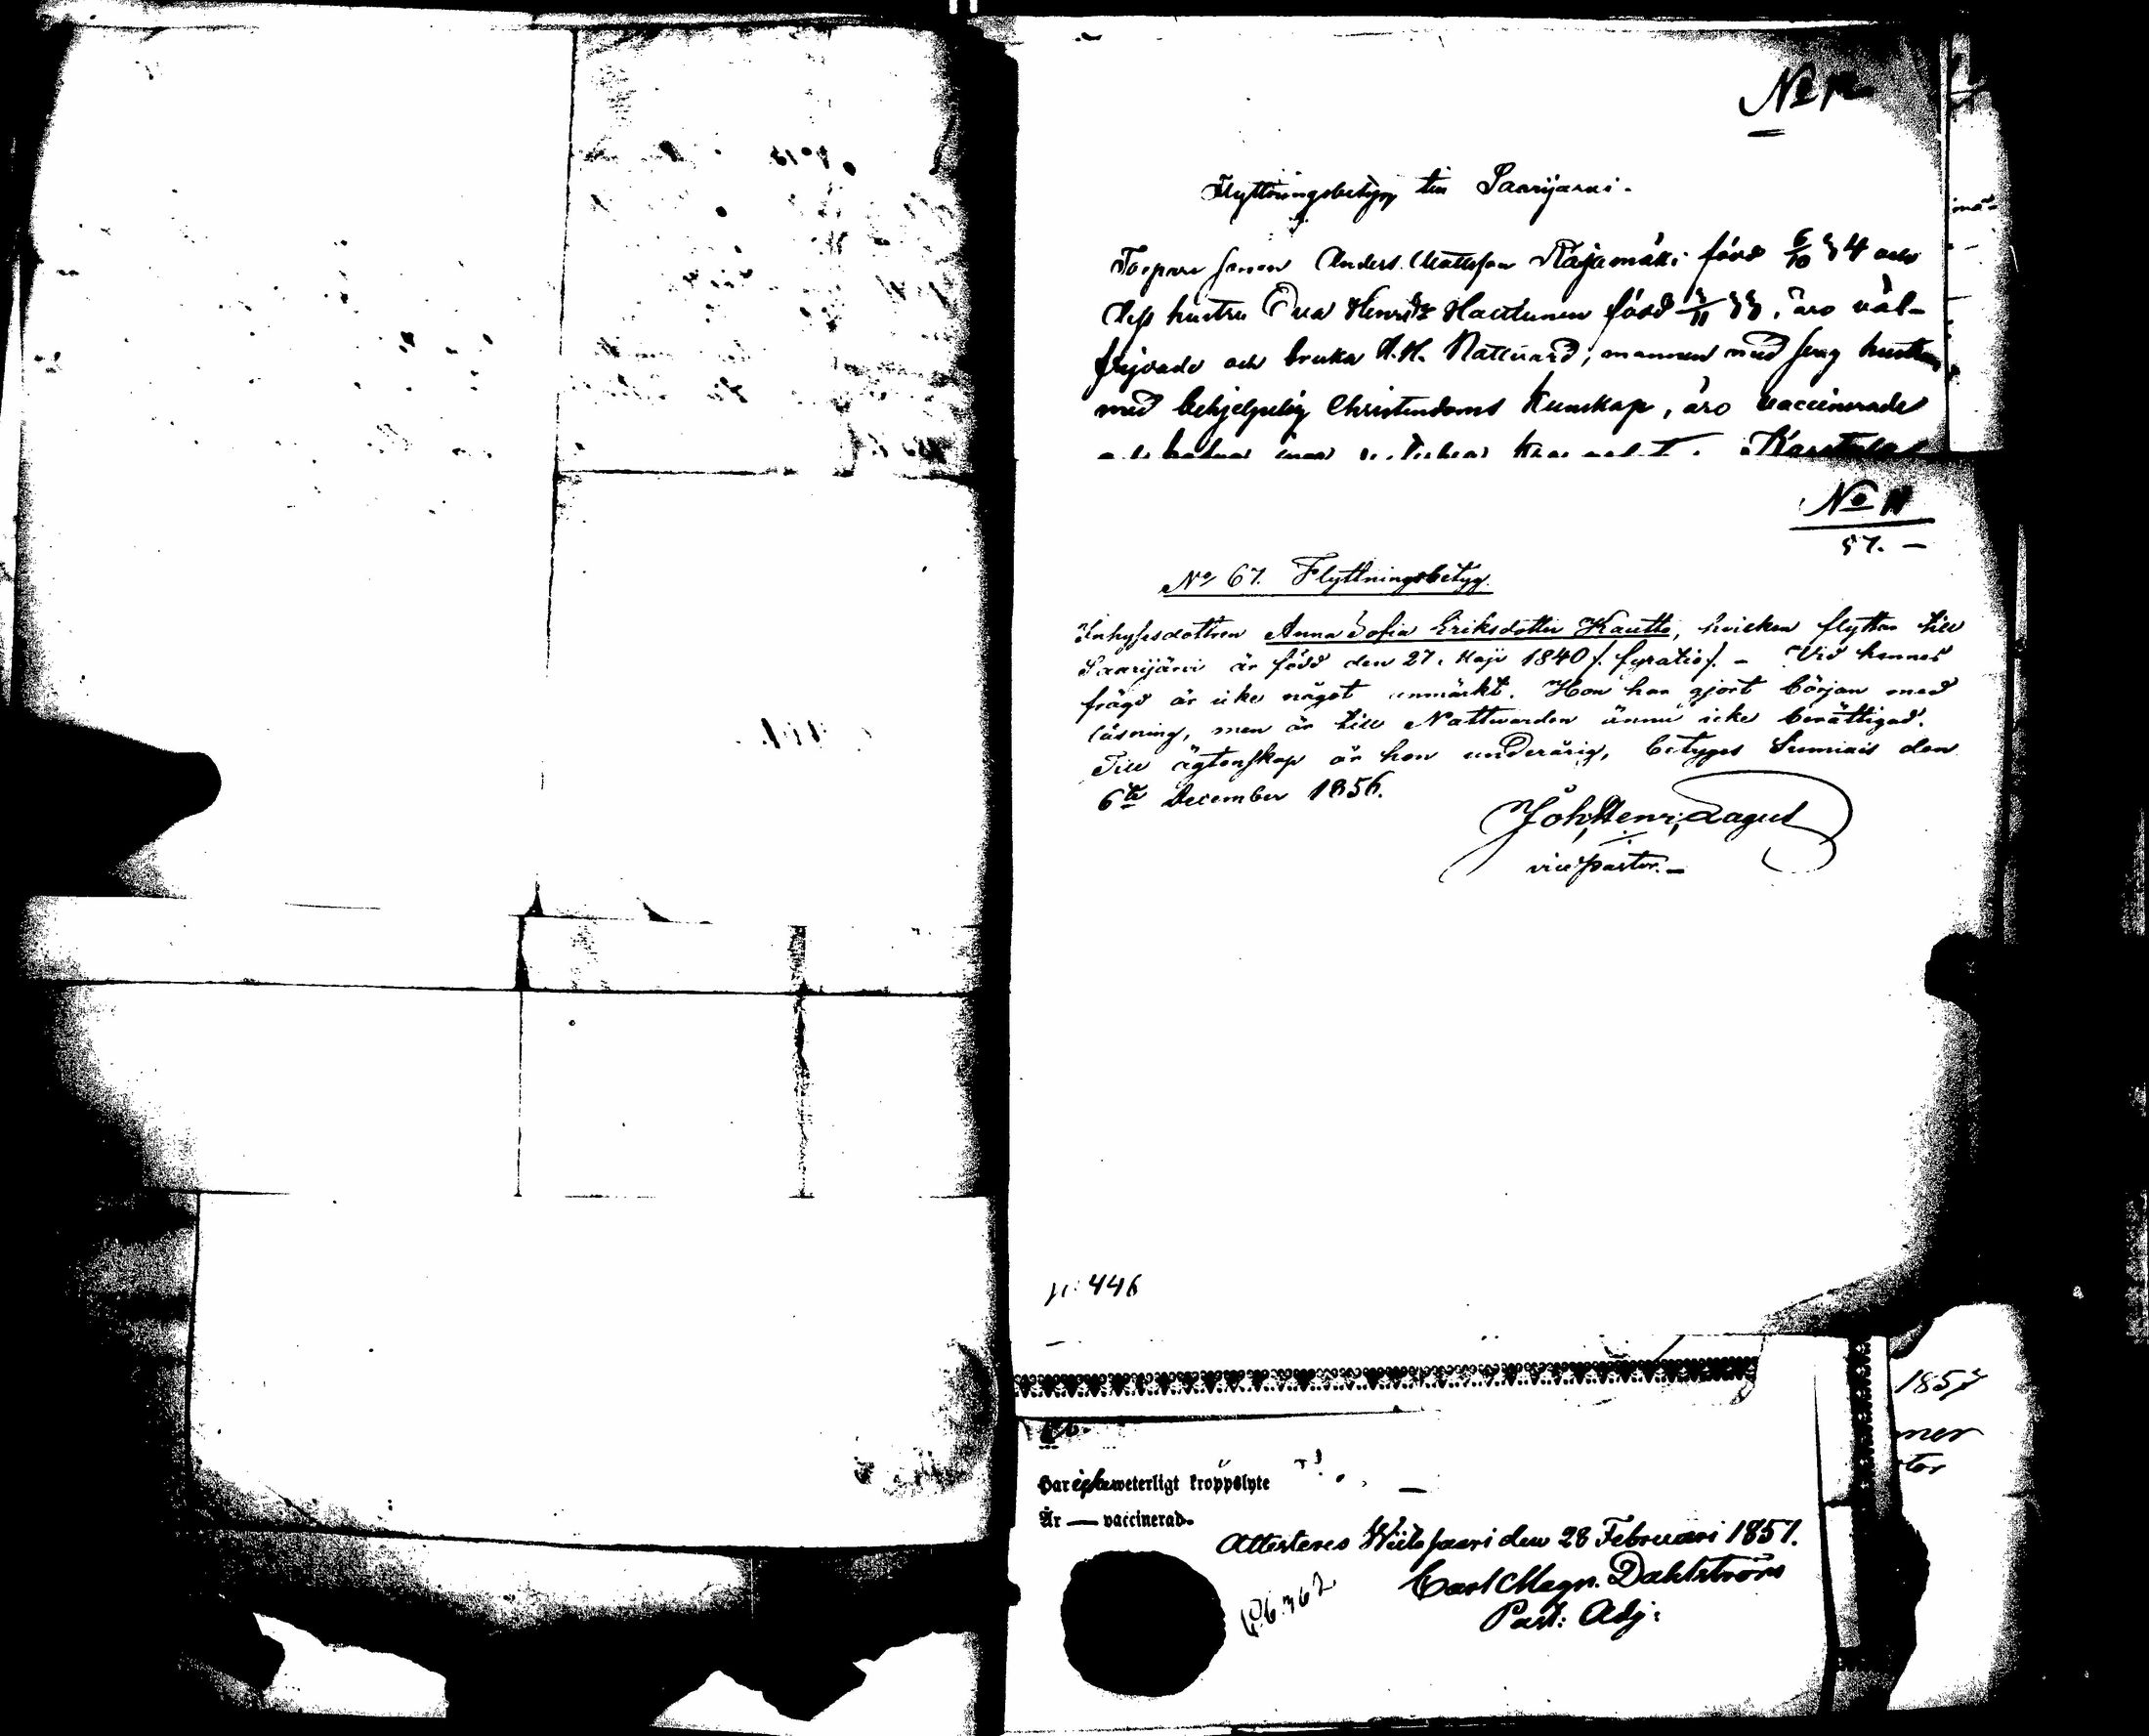 No 12
Flyttningsbetyg till Saarijärvi.
Torpare sonen Anders Mattsson Rajamäki född 6/10 34 och
dess hustru Eva Henr:dr Hautunen född 3/11 33, äro väl-
frejdade och bruka H. H. Nattvard; mannen med svag hustrun
med behjelpelig Christendoms Kunskap, äro vaccinerade
Karstula
No 11
57. —
No 67. Flyttningsbetyg.
Inhysesdottren Anna Sofia Eriksdotter Kautto, hvilken flyttar till
Saarijärvi är född den 27. Maji 1840 /: fyratio /. — Vid hennes
frägd är icke något anmärkt. Hon har gjort början med
läsning, men är till Nattvarden ännu icke berättigad.
Till ägtenskap är hon underårig, betyges Sumiais den
6te December 1856.
Joh. Henr. Lagus
vice pastor. —
p: 446
1857
Har icke weterligt kroppslyte
Är — vaccinerad.
Attesteres Wiitasaari den 28 Februari 1857.
Carl Magn. Dahlström
Past: Adj: